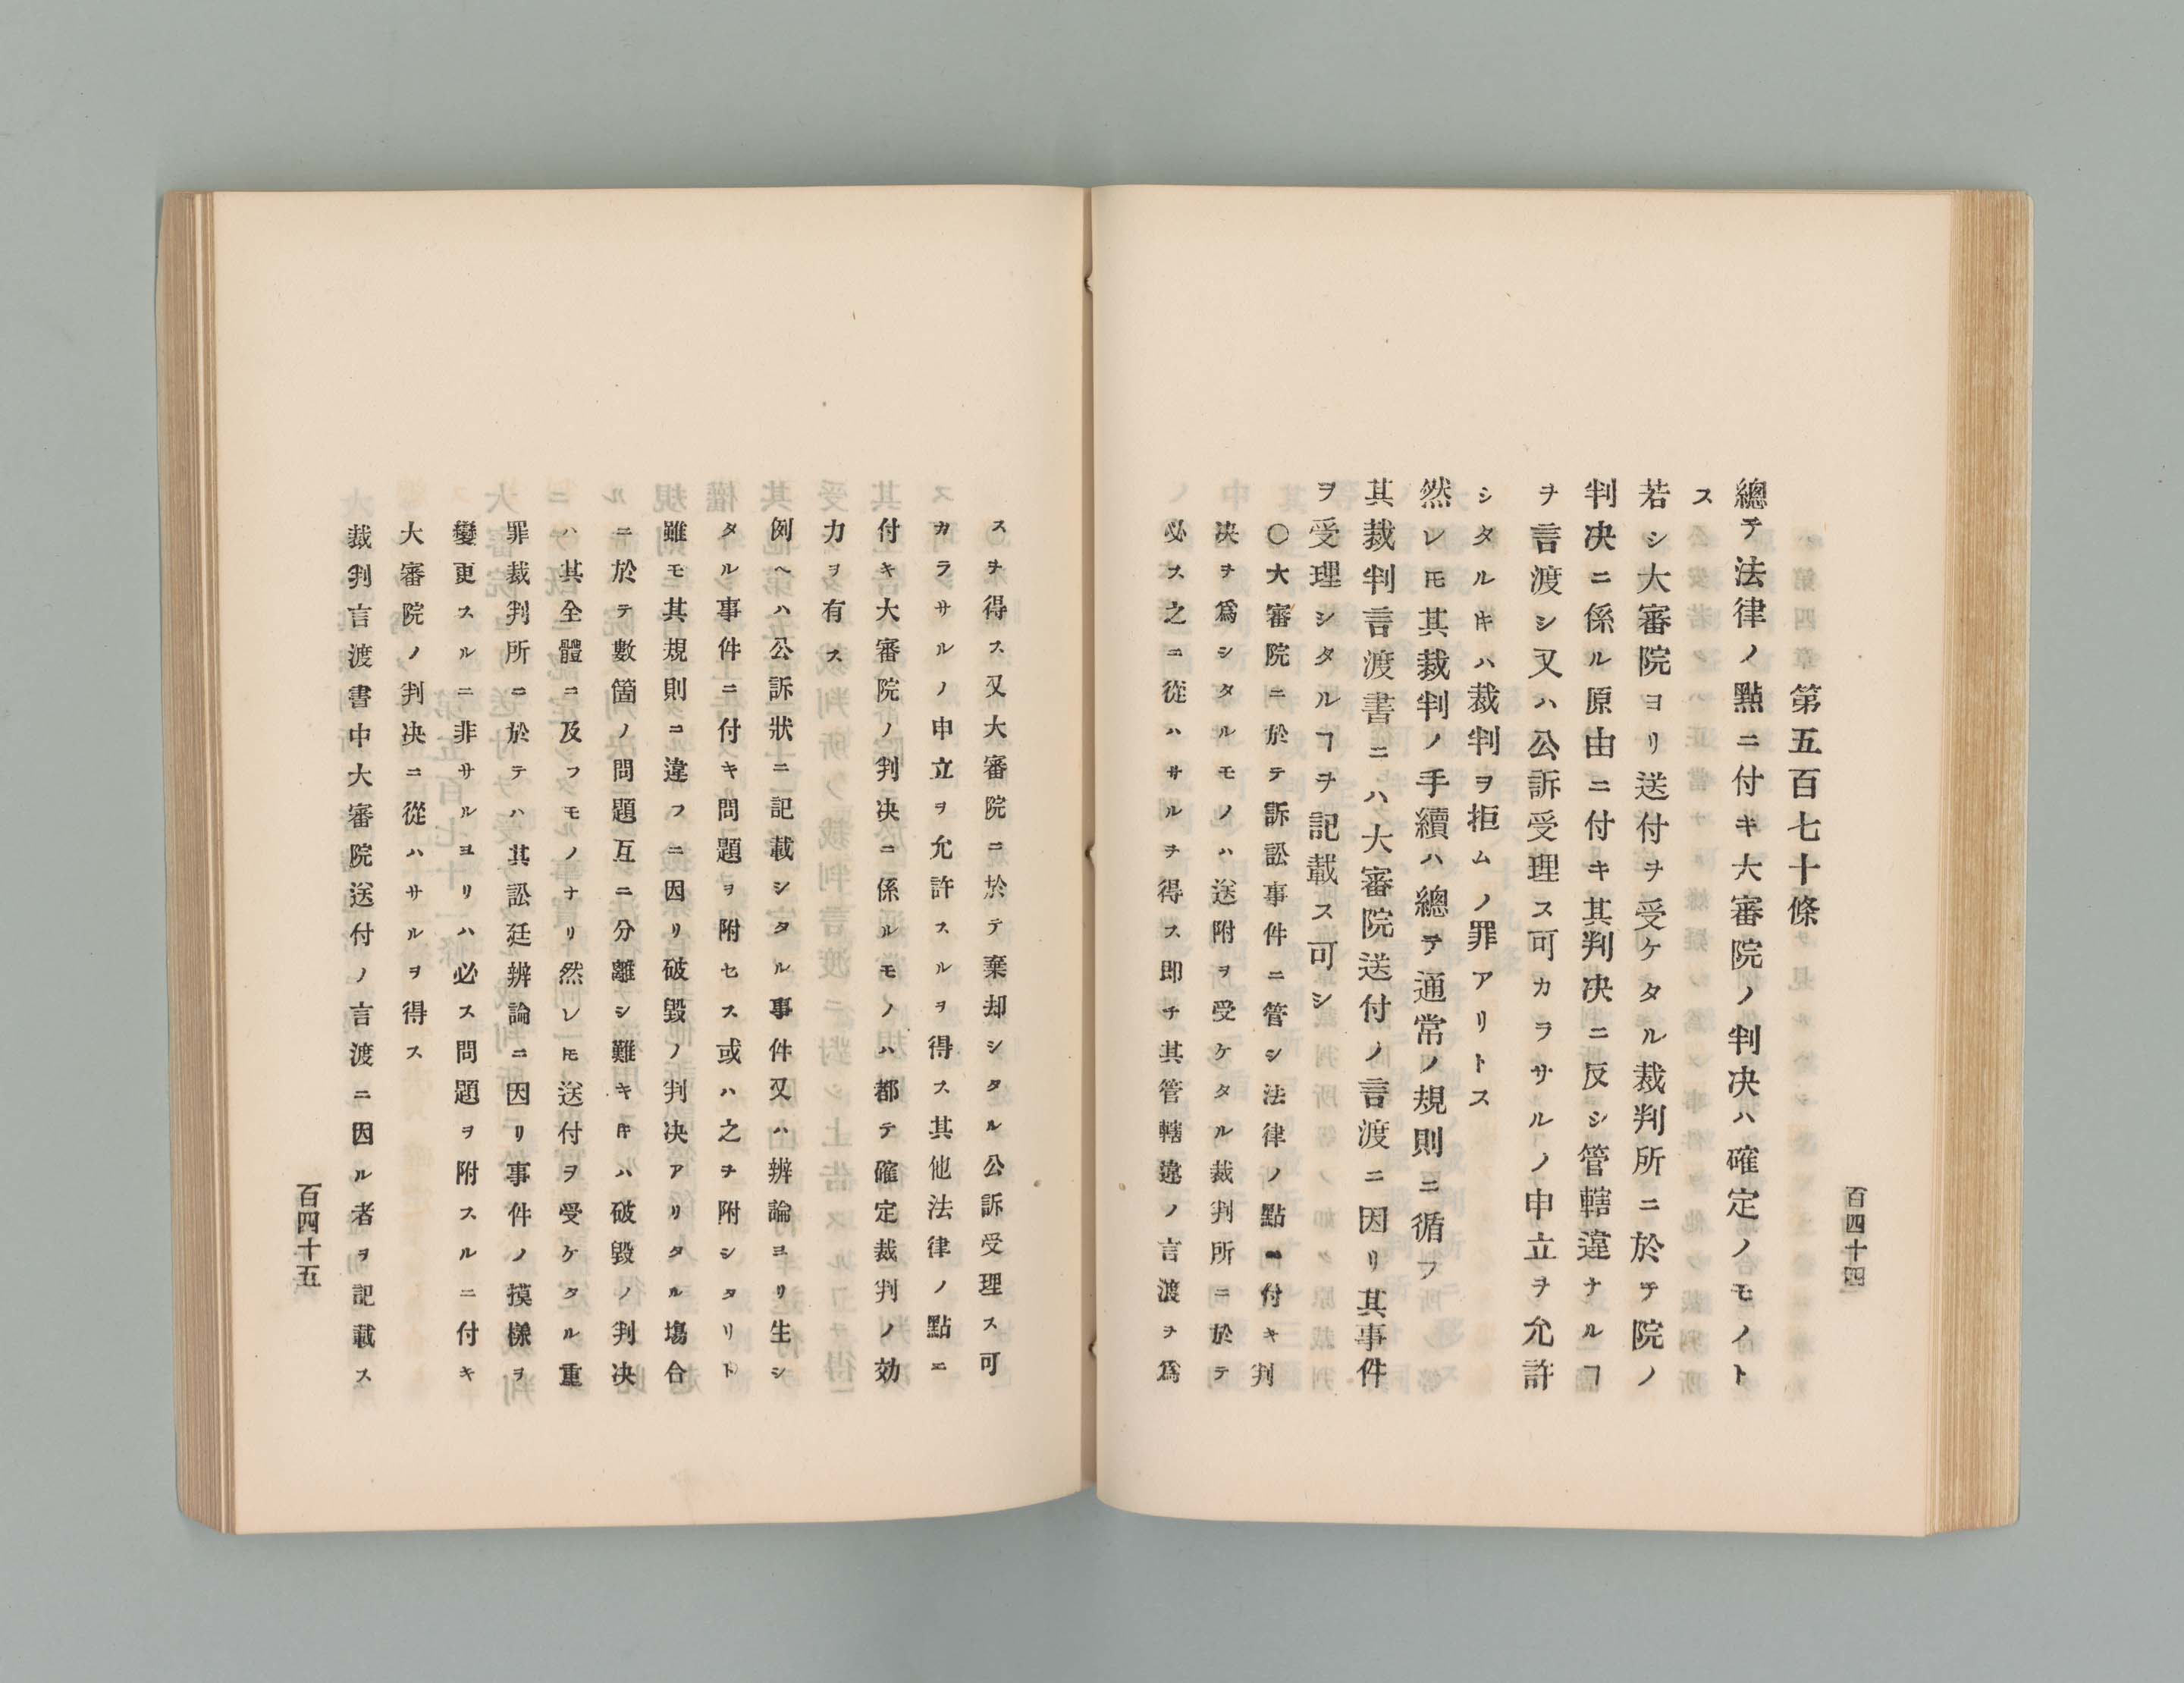 百四十四
第五百七十條
總テ法律ノ點ニ付キ大審院ノ判决ハ確定ノモノト
ス
若シ大審院ヨリ送付ヲ受ケタル裁判所ニ於テ院ノ
判决ニ係ル原由ニ付キ其判决ニ反シ管轄違ナルヿ
ヲ言渡シ又ハ公訴受理ス可カラサルノ申立ヲ允許
シタルキハ裁判ヲ拒ムノ罪アリトス
然レ𪜈其裁判ノ手續ハ總テ通常ノ規則ニ循フ
其裁判言渡書ニハ大審院送付ノ言渡ニ因リ其事件
ヲ受理シタルヿヲ記載ス可シ
〇大審院ニ於テ訴訟事件ニ管シ法律ノ點ニ付キ判
决ヲ爲シタルモノハ送附ヲ受ケタル裁判所ニ於テ
必ス之ニ從ハサルヲ得ス即チ其管轄違ノ言渡ヲ爲
スヲ得ス又大審院ニ於テ棄却シタル公訴受理ス可
カラサルノ申立ヲ允許スルヲ得ス其他法律ノ點ニ
付キ大審院ノ判决ニ係ルモノハ都テ確定裁判ノ効
力ヲ有ス
例ヘハ公訴狀ニ記載シタル事件又ハ辨論ヨリ生シ
タル事件ニ付キ問題ヲ附セス或ハ之ヲ附シタリト
雖モ其規則ニ違フニ因リ破毀ノ判决アリタル塲合
ニ於テ數箇ノ問題互ニ分離シ難キキハ破毀ノ判决
ハ其全體ニ及フモノナリ然レ𪜈送付ヲ受ケタル重
罪裁判所ニ於テハ其訟廷辨論ニ因リ事件ノ摸樣ヲ
變更スルニ非サルヨリハ必ス問題ヲ附スルニ付キ
大審院ノ判决ニ從ハサルヲ得ス
裁判言渡書中大審院送付ノ言渡ニ因ル者ヲ記載ス
百四十五